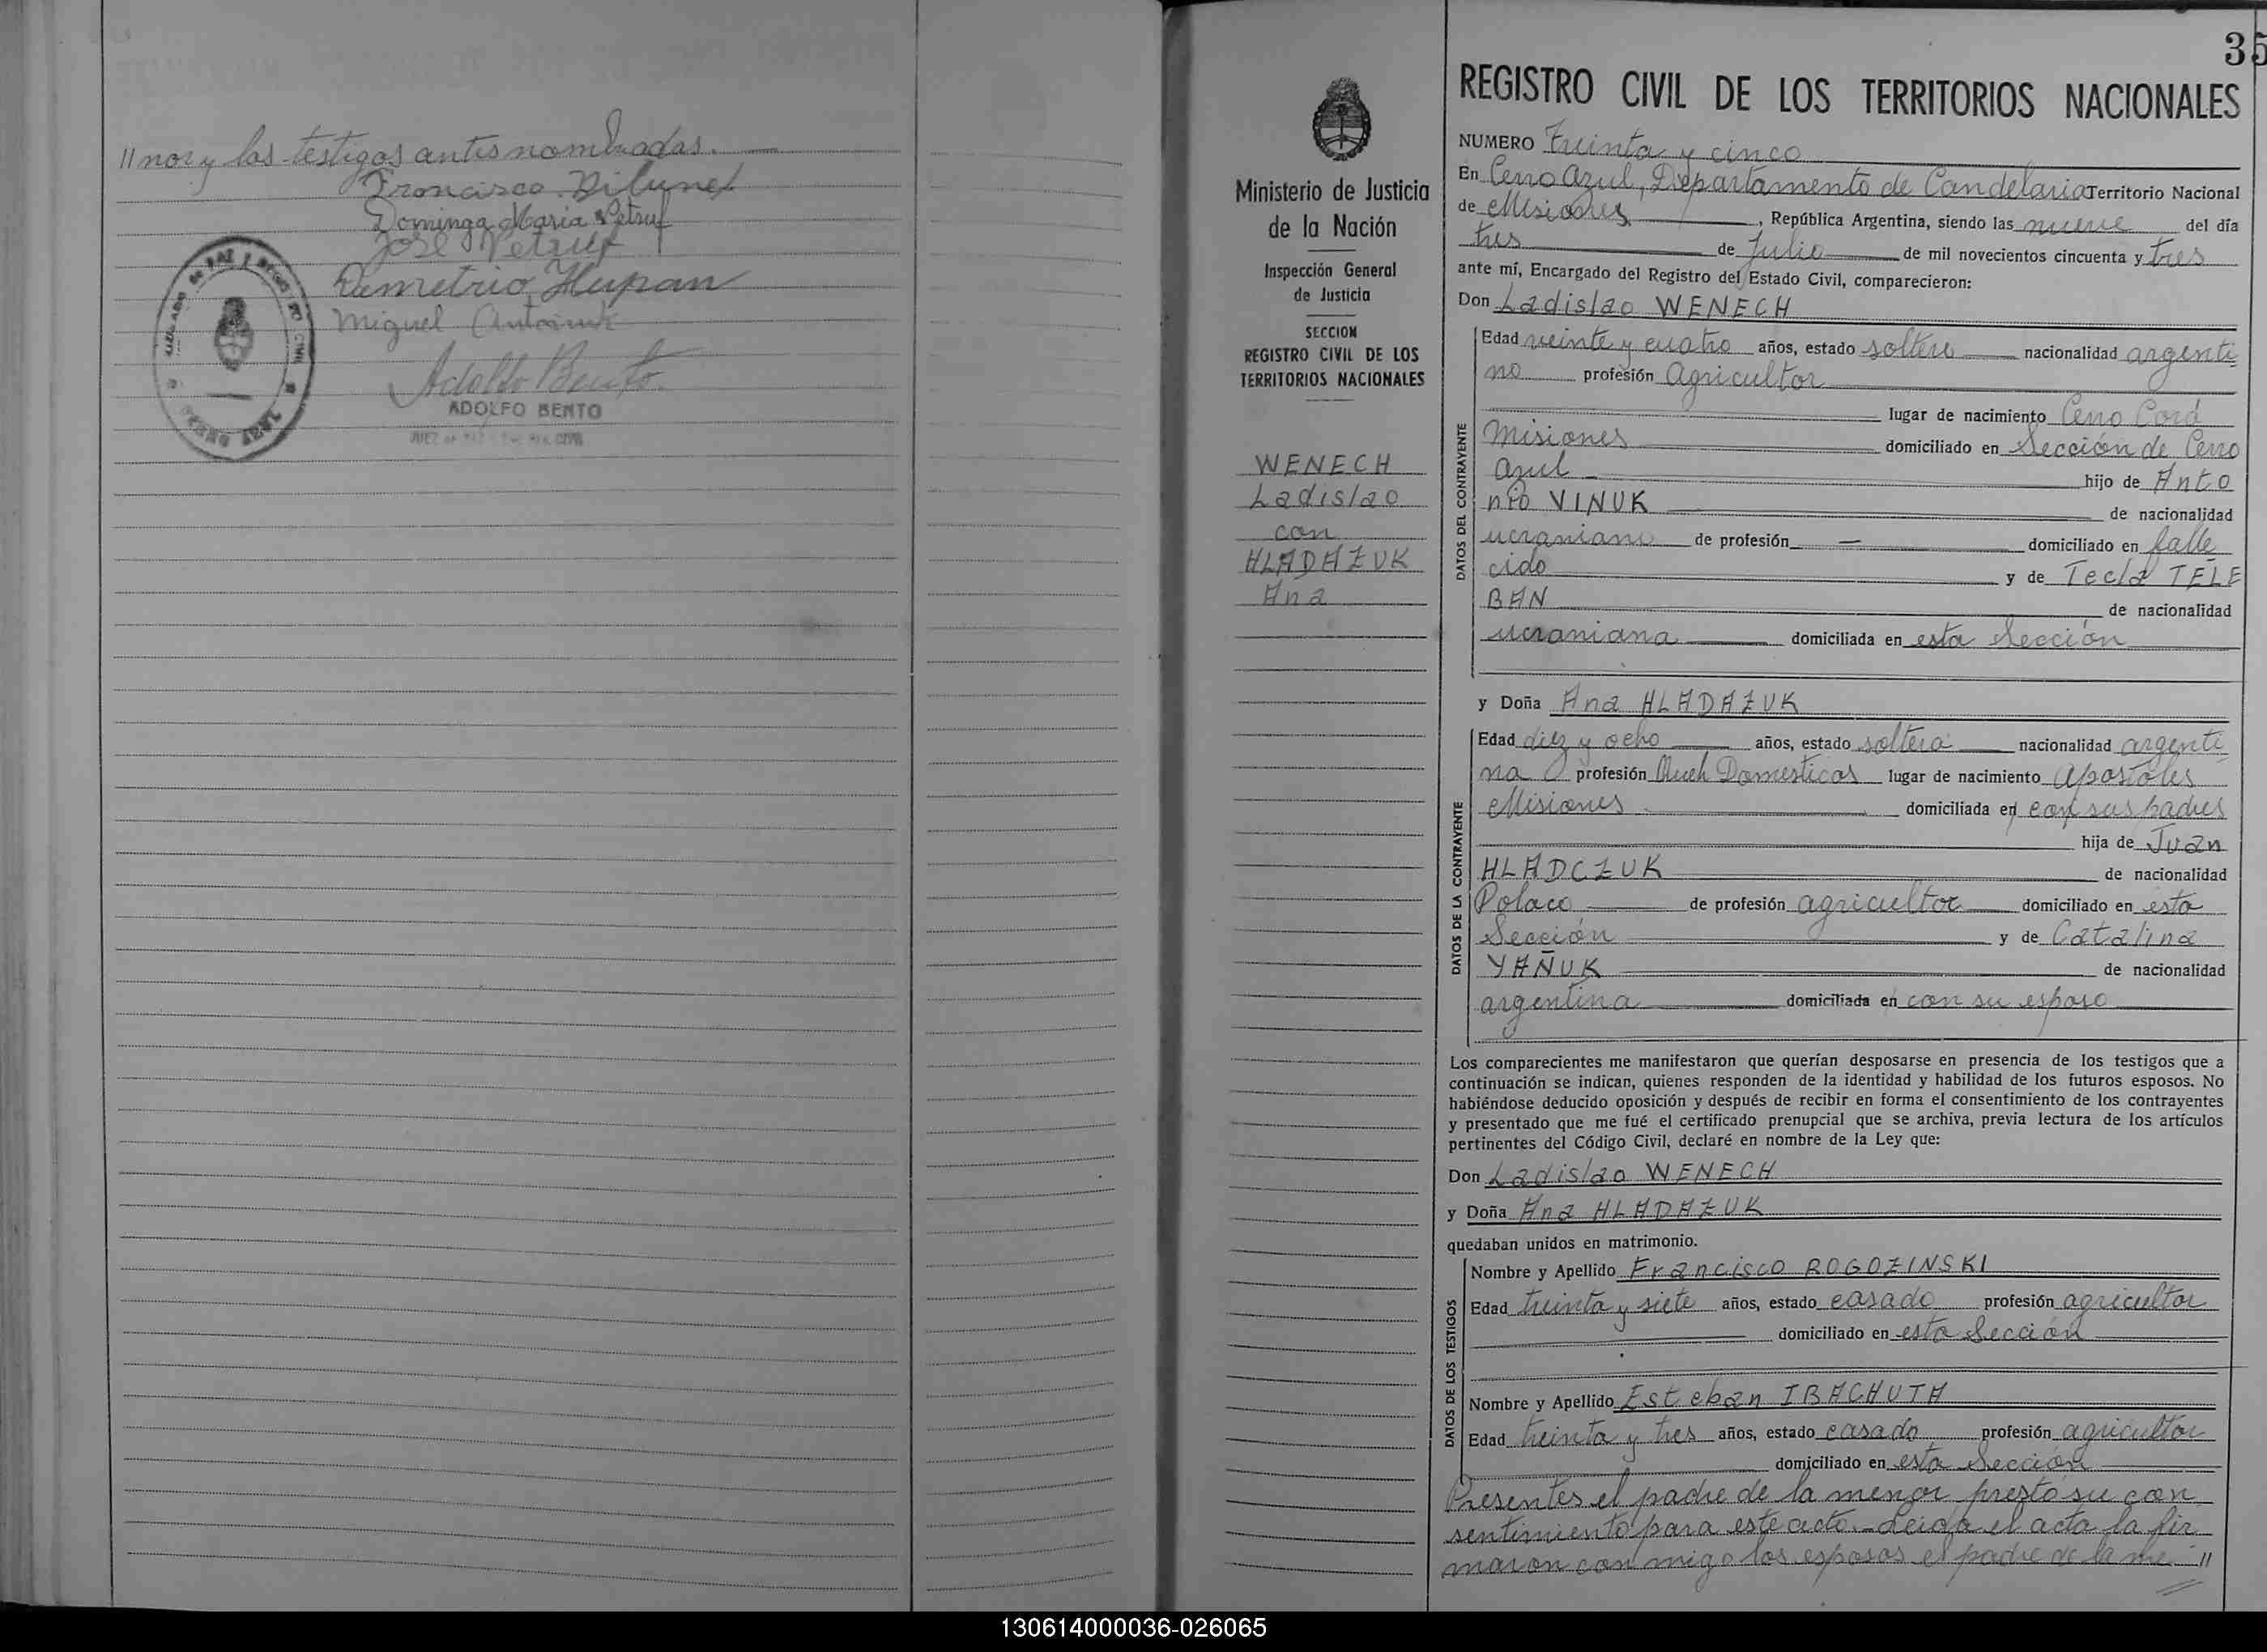 //nor y los testigos antes nombrados.
Dominga Maria Petruf
José Petruf
Demetrio Hupan
Miguel
Adolfo Bento
ADOLFO BENTO
JUEZ DE PAZ
35
Ministerio de Justicia
de la Nación
Inspección General
de Justicia
SECCION
REGISTRO CIVIL DE LOS
TERRITORIOS NACIONALES
WENECH
Ladislao
con
HLADAZUK
Ana
REGISTRO CIVIL DE LOS TERRITORIOS NACIONALES
NUMERO Treinta y cinco
En Cerro Azul, Departamento de Candelaria Territorio Nacional
de Misiones, República Argentina, siendo las nueve del día
tres de Julio de mil novecientos cincuenta y tres
ante mí, Encargado del Registro del Estado Civil, comparecieron:
Don Ladislao WENECH
DATOS DEL CONTRAYENTE
Edad veinte y cuatro años, estado soltero nacionalidad argenti
no profesión Agricultor
lugar de nacimiento Cerro Corá
Misiones domiciliado en Sección de Cerro
Azul hijo de Anto
nio VINUK de nacionalidad
ucraniano de profesión — domiciliado en falle
cido y de Tecla TELE
BAN de nacionalidad
ucraniana domiciliada en esta Sección
y Doña Ana HLADAZUK
DATOS DE LA CONTRAYENTE
Edad diez y ocho años, estado soltera nacionalidad argenti
na profesión Queh Domesticos lugar de nacimiento Apostoles
Misiones domiciliada en con sus padres
hija de Juan
HLADCZUK de nacionalidad
Polaco de profesión agricultor domiciliado en esta
Sección y de Catalina
YAÑUK de nacionalidad
argentina domiciliada en con su esposo
Los comparecientes me manifestaron que querían desposarse en presencia de los testigos que a
continuación se indican, quienes responden de la identidad y habilidad de los futuros esposos. No
habiéndose deducido oposición y después de recibir en forma el consentimiento de los contrayentes
y presentado que me fué el certificado prenupcial que se archiva, previa lectura de los artículos
pertinentes del Código Civil, declaré en nombre de la Ley que:
Don Ladislao WENECH
y Doña Ana HLADAZUK
quedaban unidos en matrimonio.
DATOS DE LOS TESTIGOS
Nombre y Apellido Francisco ROGOZINSKI
Edad treinta y siete años, estado casado profesión agricultor
domiciliado en esta Sección
Nombre y Apellido Esteban IBACHUTA
Edad treinta y tres años, estado casado profesión agricultor
domiciliado en esta Sección
Presentes el padre de la menor prestó su con
sentimiento para este acto.- Leida el acta la fir
maron con migo los esposos el padre de la me //
130614000036-026065